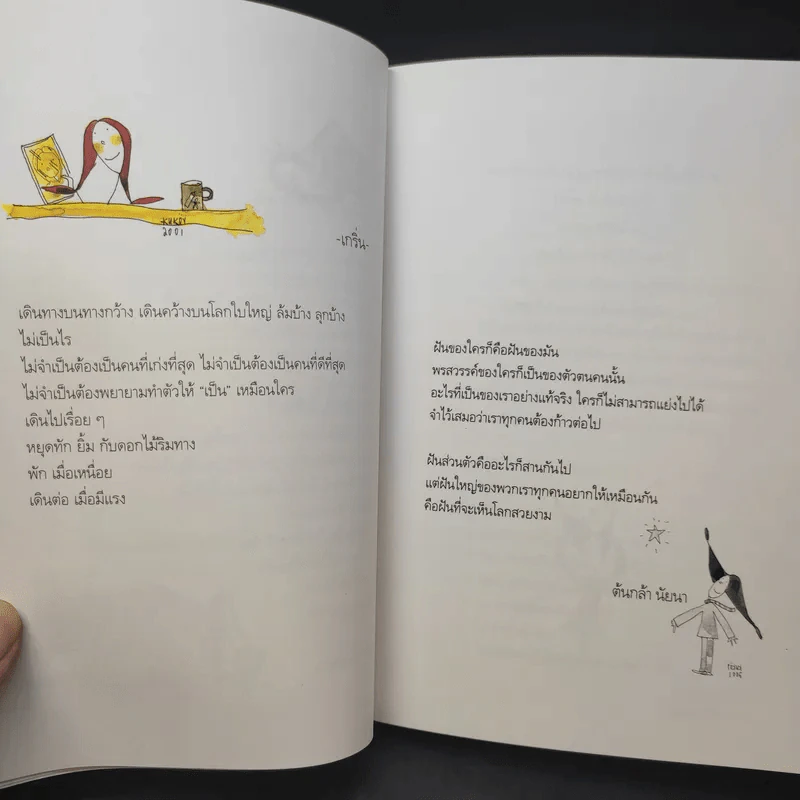 KUKEY
2001
-เกริ่น-
เดินทางบนทางกว้าง เดินคว้างบนโลกใบใหญ่ ล้มบ้าง ลุกบ้าง
ไม่เป็นไร
ไม่จำเป็นต้องเป็นคนที่เก่งที่สุด ไม่จำเป็นต้องเป็นคนที่ดีที่สุด
ไม่จำเป็นต้องพยายามทำตัวให้ “เป็น” เหมือนใคร
เดินไปเรื่อย ๆ
หยุดทัก ยิ้ม กับดอกไม้ริมทาง
พัก เมื่อเหนื่อย
เดินต่อ เมื่อมีแรง
ฝันของใครก็คือฝันของมัน
พรสวรรค์ของใครก็เป็นของตัวตนคนนั้น
อะไรที่เป็นของเราอย่างแท้จริง ใครก็ไม่สามารถแย่งไปได้
จำไว้เสมอว่าเราทุกคนต้องก้าวต่อไป
ฝันส่วนตัวคืออะไรก็สานกันไป
แต่ฝันใหญ่ของพวกเราทุกคนอยากให้เหมือนกัน
คือฝันที่จะเห็นโลกสวยงาม
ต้นกล้า นัยนา